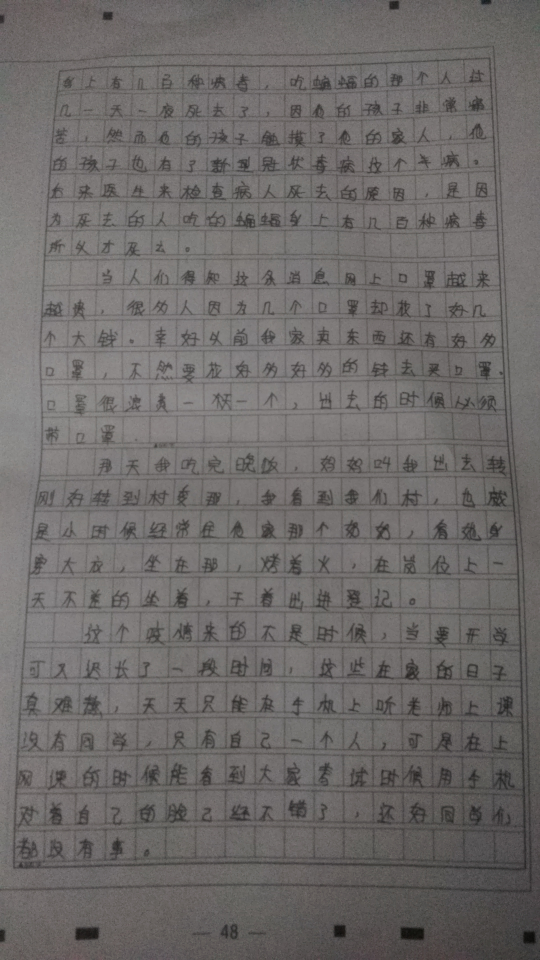 身上有几百种病毒，吃蝙蝠的那个人过
几一天一夜死去了，因他的孩子非常痛
苦，然而他的孩子触摸了他的家人，他
的孩子也有了新型冠状毒病这个毛病。
后来医生来检查病人死去的原因，是因
为死去的人吃的蝙蝠身上有几百种病毒
所以才死去。
当人们得知这条消息网上口罩越来
越贵，很多人因为几个口罩却花了好几
个大钱。幸好以前我家卖东西还有好多
口罩，不然要花好多好多的钱去买口罩.
口罩很浪费一次一个，出去的时候必须
带口罩.
那天我吃完晚饭，妈妈叫我出去转
刚好转到村委那，我看到我们村，也就
是小时候经常在他家那个奶奶，看她身
穿大衣，坐在那，烤着火，在岗位上一
天不差的坐着，干着出进登记。
这个疫情来的不是时候，当要开学
可又迟长了一段时间，这些在家的日子
真难熬，天天只能在手机上听老师上课
没有同学，只有自己一个人，可是在上
网课的时候能看到大家考试时候用手机
对着自己的脸已经不错了，还好同学们
都没有事。
48